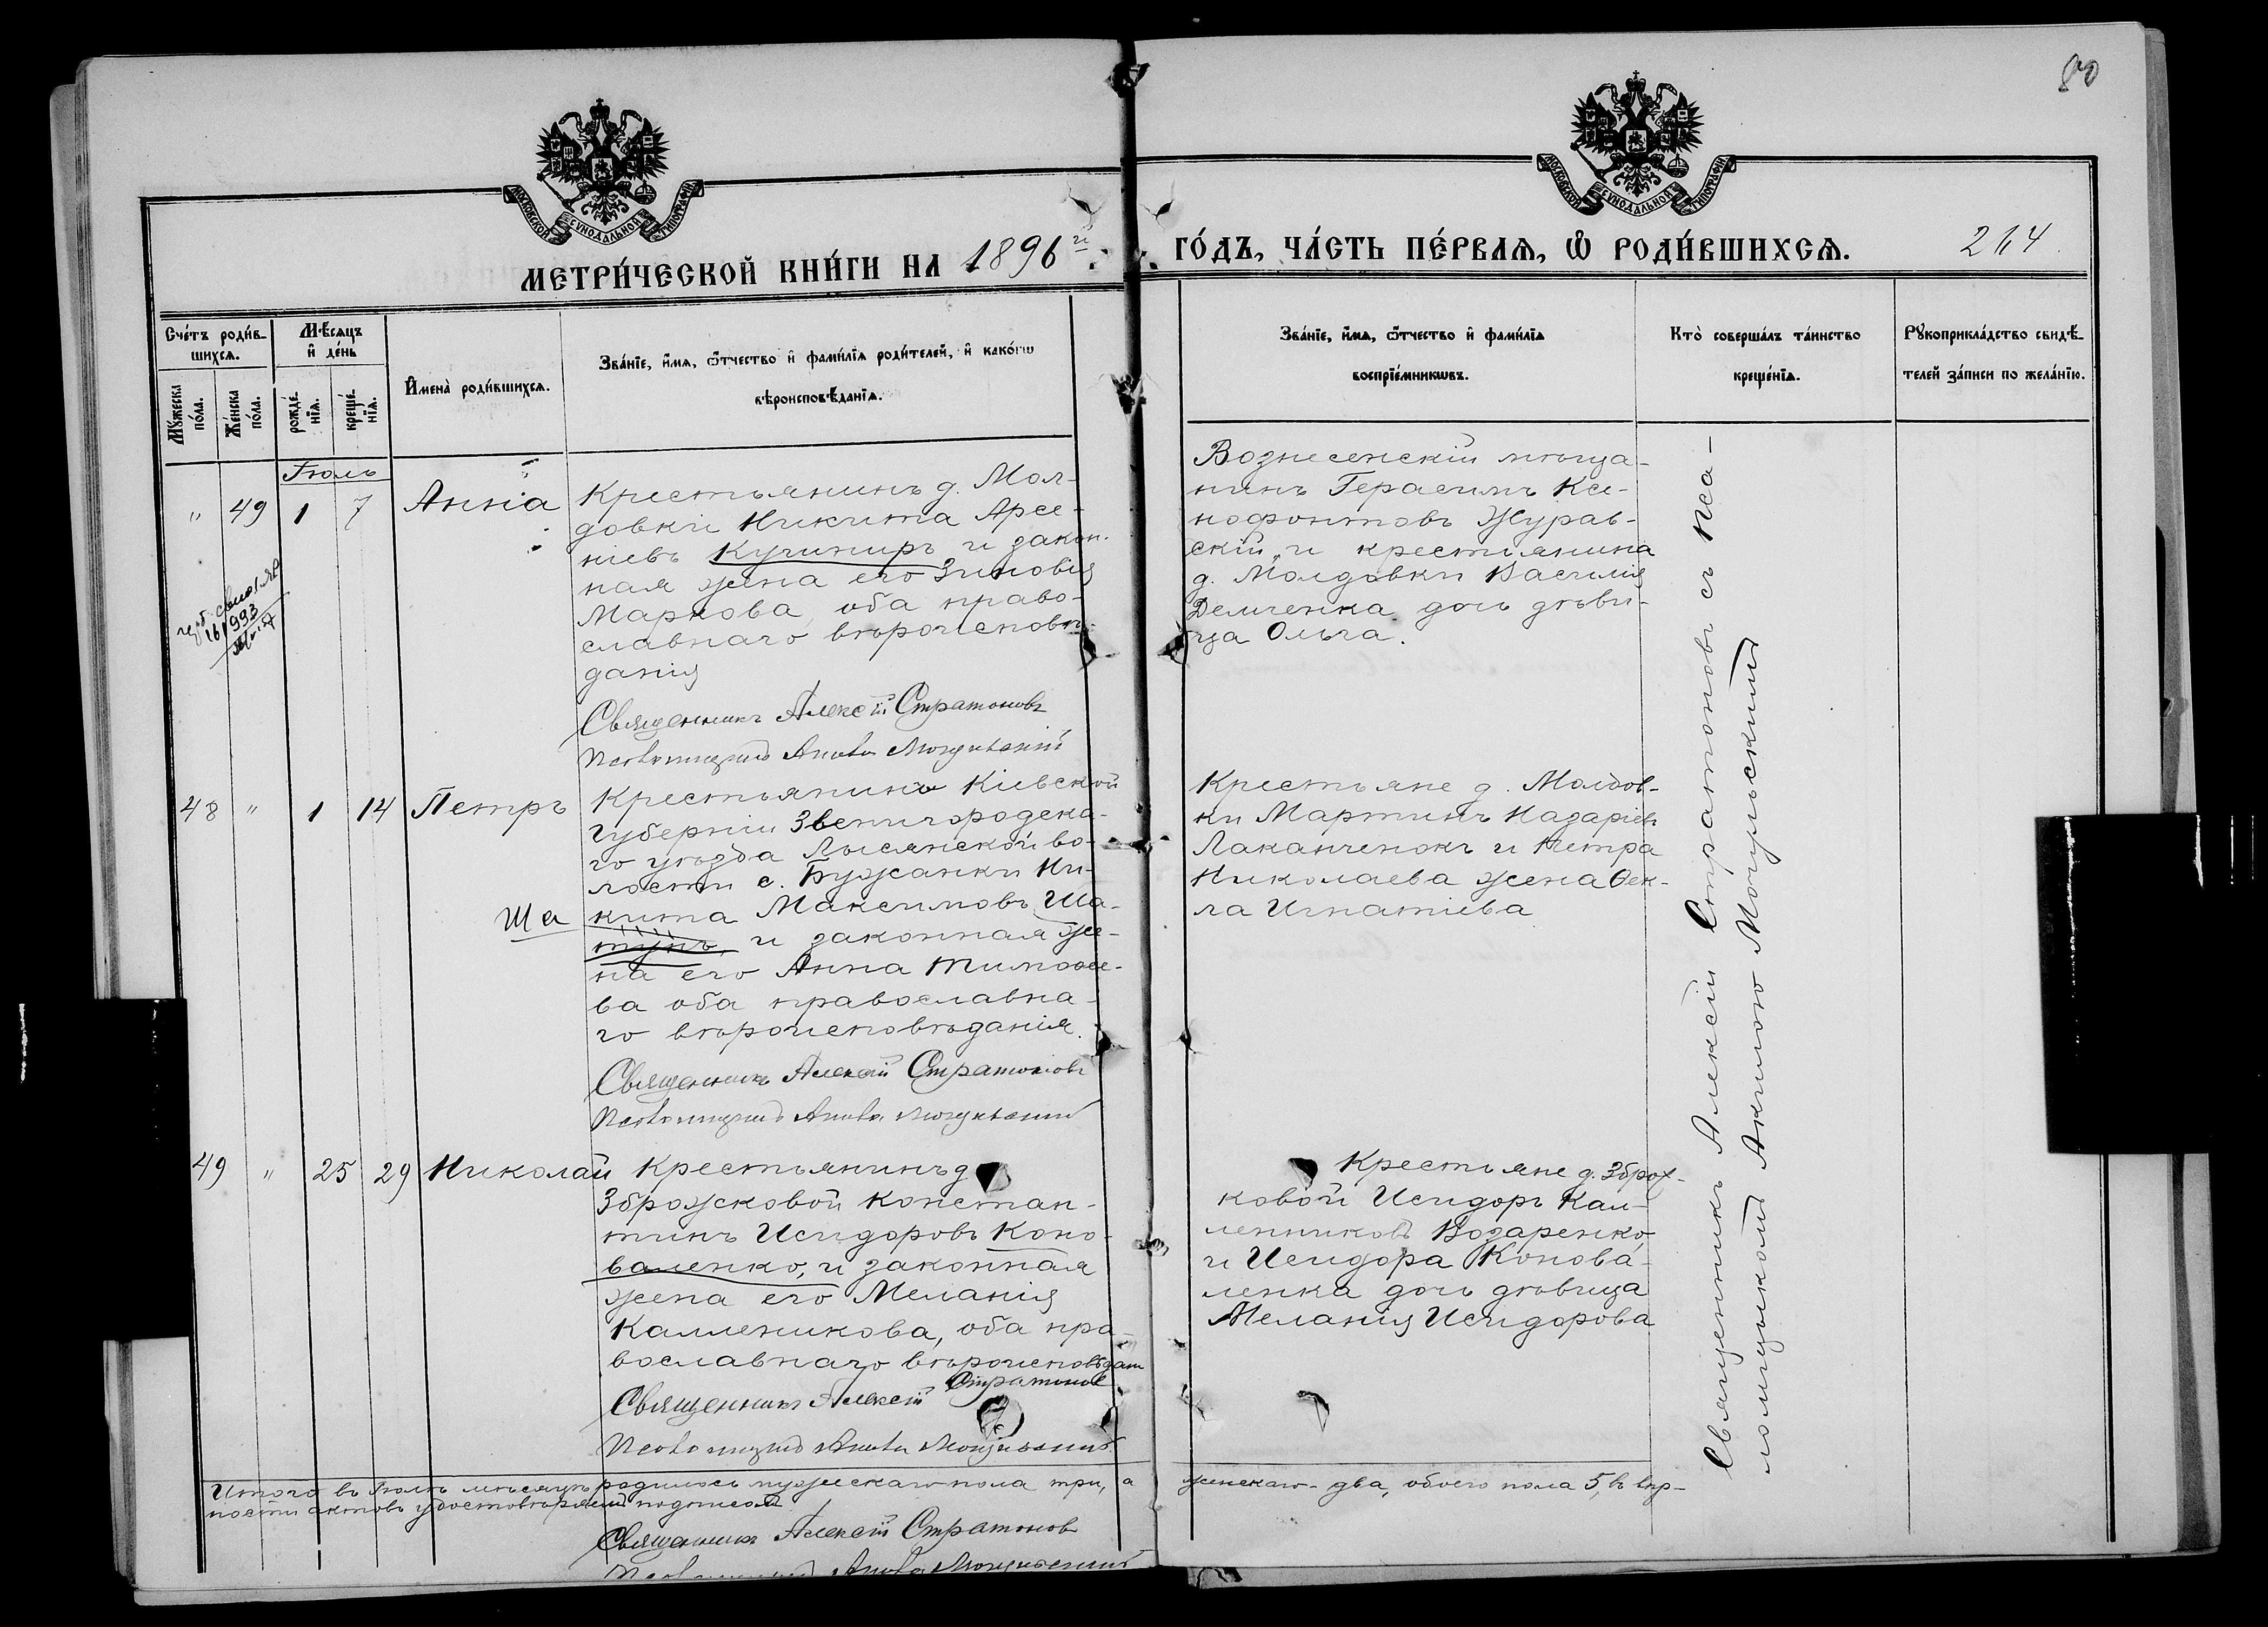 80
МОСКОВСКОЙ СѴНОДАЛЬНОЙ ТИПОГРАФІИ
МОСКОВСКОЙ СѴНОДАЛЬНОЙ ТИПОГРАФІИ
МЕТРИ́ЧЕСКОЙ КНИ́ГИ НА 1896 й
ГО́ДЪ, ЧА́СТЬ ПЕ́РВАѦ, Ѡ РОДИ́ВШИХСѦ. 264
Сче́тъ роди́в-
шихсѧ.
Мꙋ́жеска по́ла.
Же́нска по́ла.
Мѣ́сѧцъ
и҆ де́нь
рожде́-
нїѧ.
креще́-
нїѧ.
И҆мена̀ роди́вшихсѧ.
Зва́нїе, и҆́мѧ, ѻ҆́тчество и҆ фами́лїѧ роди́телей, и҆ како́гѡ
вѣроисповѣ́данїѧ.
Зва́нїе, и҆́мѧ, ѻ҆́тчество и҆ фами́лїѧ
воспрїе́мникѡвъ.
Кто̀ соверша́лъ та́инство
креще́нїѧ.
Рꙋкоприкла́дство свидѣ́-
телей за́писи по жела́нїю.
Іюль
" 49 1 7 Анна
Крестьянинъ д. Мол-
довки Никита Арсе-
ніевъ Кучиниръ и закон-
ная жена его Зиновія
Маркова, оба право-
славнаго вѣроисповѣ-
данія
Священникъ Алексій Стратоновъ
Псаломщикъ Акила Могульскій
Вознесенскій мѣща-
нинъ Герасимъ Ксе-
нофонтовъ Журав-
скій и крестьянина
д. Молдовки Василія
Демченка дочь дѣви-
ца Ольга.
48 " 1 14 Петръ
Крестьянинъ Кіевской
губерніи Звенигородска-
го уѣзда Лысянской во-
лости с. Бужанки Ни-
Ша кита Максимовъ Ша-
тунъ, и законная же-
на его Анна Тимофее-
ва оба православна-
го вѣроисповѣданія.
Священникъ Алексій Стратоновъ
Псаломщикъ Акила Могульскій
Крестьяне д. Молдов-
ки Мартинъ Назаріевъ
Лаканченокъ и Петра
Николаева жена Ѳек-
ла Игнатіева
49 " 25 29 Николай
Крестьянинъ д.
Зброжковой Констан-
тинъ Исидоровъ Коно-
валенко, и законная
жена его Меланія
Каллениkова, оба пра-
вославнаго вѣроисповѣдан
Священникъ Алексій Стратонов
Псаломщикъ Акила Могульскій
Крестьяне д. Зброж-
ковой Исидоръ Кал-
лениковъ Козаренко
и Исидора Конова-
ленка дочь дѣвица
Меланія Исидорова
Священникъ Алексій Стратоновъ съ Пса-
ломщикомъ Акилою Могульскимъ
Итого въ Іюлѣ мѣсяцѣ родилось мужескаго пола три, а женскаго два, обоего пола 5, въ вѣр-
ности актовъ удостовѣряемъ подписомъ
Священникъ Алексій Стратонов
Псаломщикъ Акила Могульскій